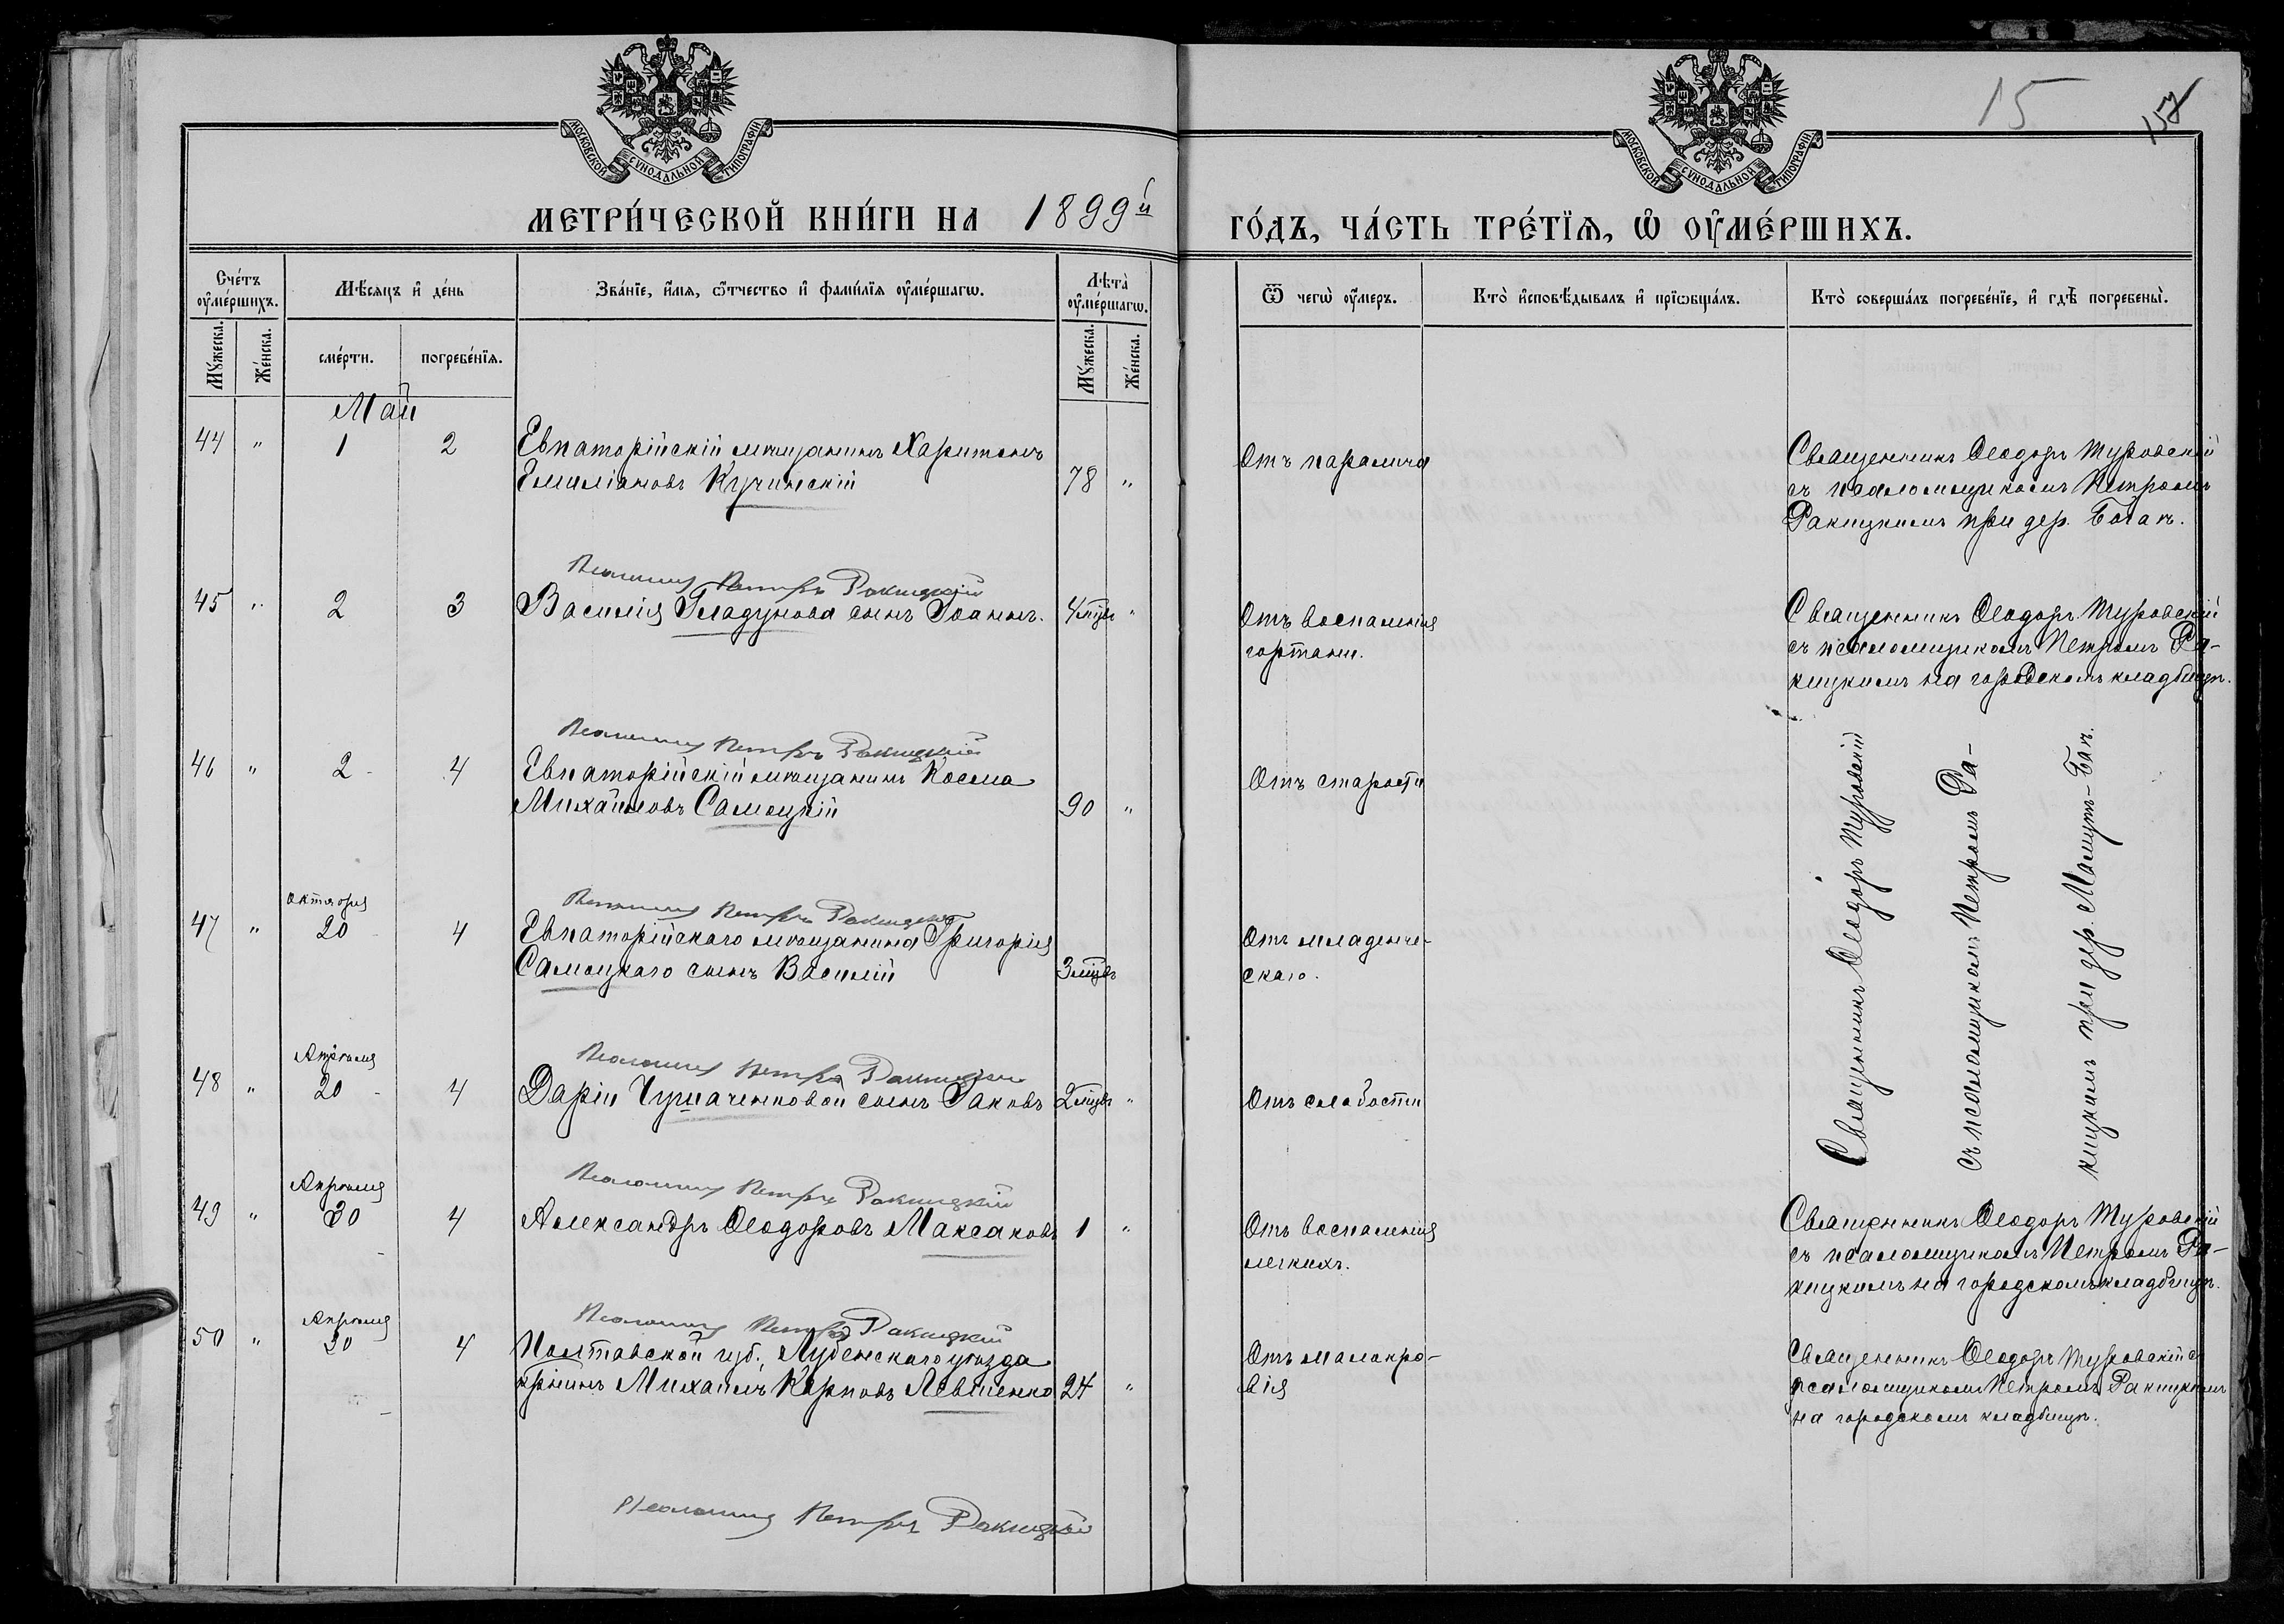 МОСКОВСКОЙ СѴНОДАЛЬНОЙ ТИПОГРАФІИ
МОСКОВСКОЙ СѴНОДАЛЬНОЙ ТИПОГРАФІИ
15
МЕТРИ́ЧЕСКОЙ КНИ́ГИ НА 1899й ГО́ДЪ, ЧА́СТЬ ТРЕ́ТЇѦ, Ѡ҆ ОУ҆МЕ́РШИХЪ.
Сче́тъ оу҆ме́ршихъ.
Мꙋ́жеска.
Же́нска.
Мѣ́сяцъ и҆ де́нь
сме́рти.
погребе́нїѧ.
Зва́нїе, и҆́мѧ, ѻ҆́тчество и҆ фамѝлїѧ оу҆ме́ршагѡ.
Лѣ́та оу҆ме́ршагѡ.
Мꙋ́жеска.
Же́нска.
Ѿ чегѡ̀ оу҆́меръ.
Кто̀ и҆сповѣ́дывалъ и҆ прїѡбща́лъ.
Кто̀ соверша́лъ погребе́нїе, и҆ гдѣ̀ погребены̀.
Май
44 " 1 2 Евпаторійскій мѣщанинъ Харитонъ
Емиліановъ Кучинскій 78 "
Отъ паралича
Священникъ Ѳеодоръ Туровскій
съ псаломщикомъ Петромъ
Ракицкимъ при дер. Богай.
Псаломщ Петръ Ракицкій
45 " 2 3 Василія Гладунова сынъ Іоаннъ. 4 мцвъ "
Отъ воспаленія
гортани.
Священникъ Ѳеодоръ Туровскій
съ псаломщикомъ Петромъ Ра-
кицкимъ на городскомъ кладбищѣ.
Псаломщ Петръ Ракицкій
46 " 2 4 Евпаторійскій мѣщанинъ Косма
Михайловъ Самоцкій 90 "
Отъ старости
Священникъ Ѳеодоръ Туровскій
съ псаломщикомъ Петромъ Ра-
кицкимъ при дер. Мамутъ-Бак.
Псаломщ Петръ Ракицкій
октября
47 " 20 4 Евпаторійскаго мѣщанина Григорія
Самоцкаго сынъ Василій 3 мцвъ
Отъ младенче-
скаго.
Псаломщ Петръ Ракицкій
Апрѣля
48 " 20 4 Даріи Чумаченковой сынъ Іаковъ 2 мцвъ "
Отъ слабости
Псаломщ Петръ Ракицкій
Апрѣля
49 " 30 4 Александръ Ѳеодоровъ Максаковъ 1 "
Отъ воспаленія
легкихъ.
Священникъ Ѳеодоръ Туровскій
съ псаломщикомъ Петромъ Ра-
кицкимъ на городскомъ кладбищѣ.
Псаломщ Петръ Ракицкій
Апрѣля
50 " 30 4 Полтавской губ., Лубенскаго уѣзда
кр̃нинъ Михаилъ Карповъ Левшенко 24 "
Отъ малокро-
вія
Священникъ Ѳеодоръ Туровскій съ
псаломщикомъ Петромъ Ракицкимъ
на городскомъ кладбищѣ.
Псаломщ Петръ Ракицкій